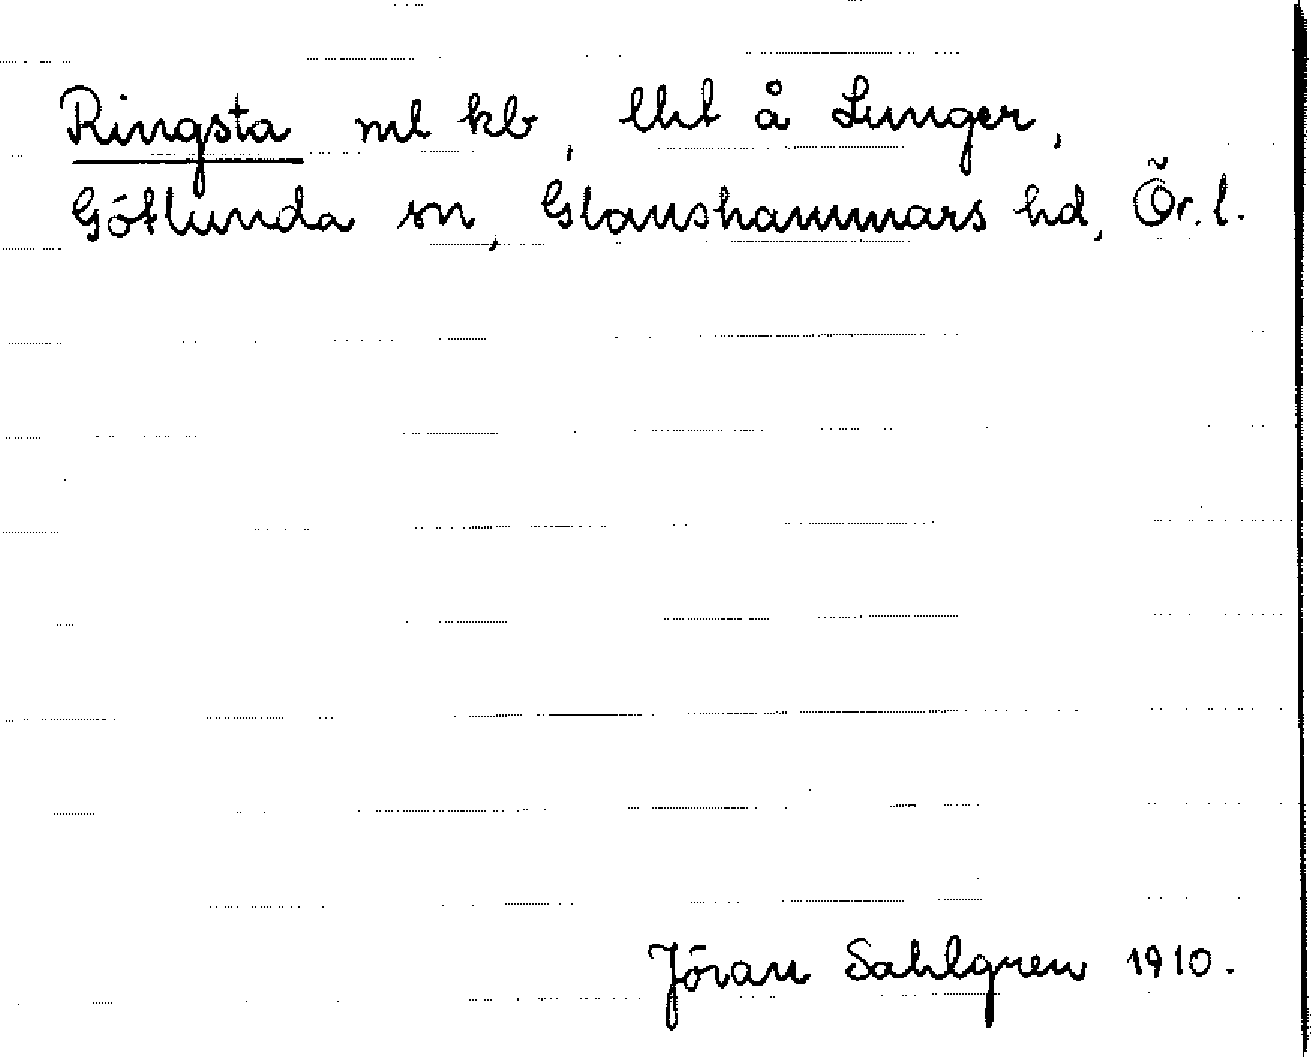 Ringsta ml kb, lht å Lunger,
Götlunda sn, Glanshammars hd, Ör. l.
Jöran Sahlgren 1910.